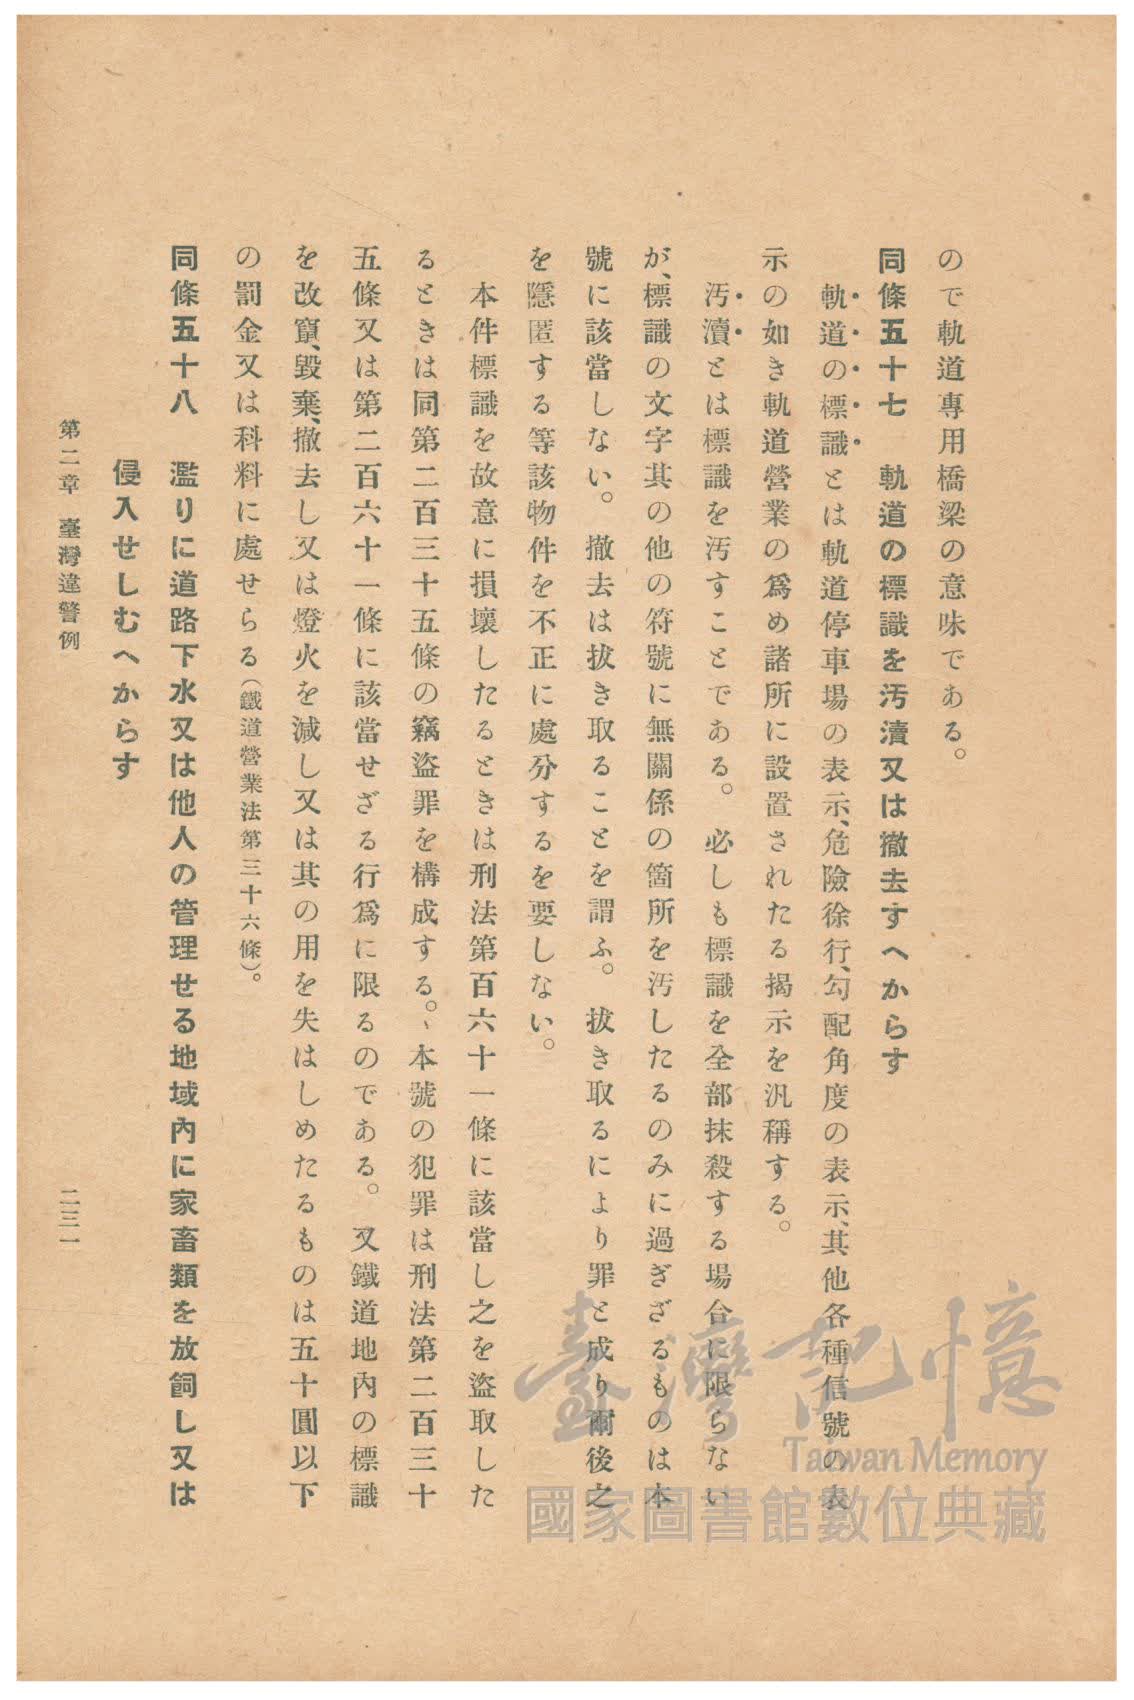 ので軌道專用橋梁の意味である。
同條五十七　軌道の標識を汚瀆又は撤去すへからす
軌道の標識とは軌道停車場の表示、危險徐行、勾配角度の表示、其他各種信號の表
示の如き軌道營業の爲め諸所に設置されたる揭示を汎稱する。
汚瀆とは標識を汚すことである。必しも標識を全部抹殺する場合に限らない
が、標識の文字其の他の符號に無關係の箇所を汚したるのみに過ぎざるものは本
號に該當しない。撤去は拔き取ることを謂ふ。拔き取るにより罪と成り爾後之
を隱匿する等該物件を不正に處分するを要しない。
本件標識を故意に損壞したるときは刑法第百六十一條に該當し之を盜取した
るときは同第二百三十五條の竊盜罪を構成する。、本號の犯罪は刑法第二百三十
五條又は第二百六十一條に該當せざる行爲に限るのである。又鐵道地內の標識
を改竄、毀棄、撤去し又は燈火を減し又は其の用を失はしめたるものは五十圓以下
の罰金又は科料に處せらる（鐵道營業法第三十六條）。
同條五十八　濫りに道路下水又は他人の管理せる地域內に家畜類を放飼し又は
侵入せしむへからす
第二章　臺灣違警例
二三一
臺灣記憶
Taiwan Memory
國家圖書館數位典藏